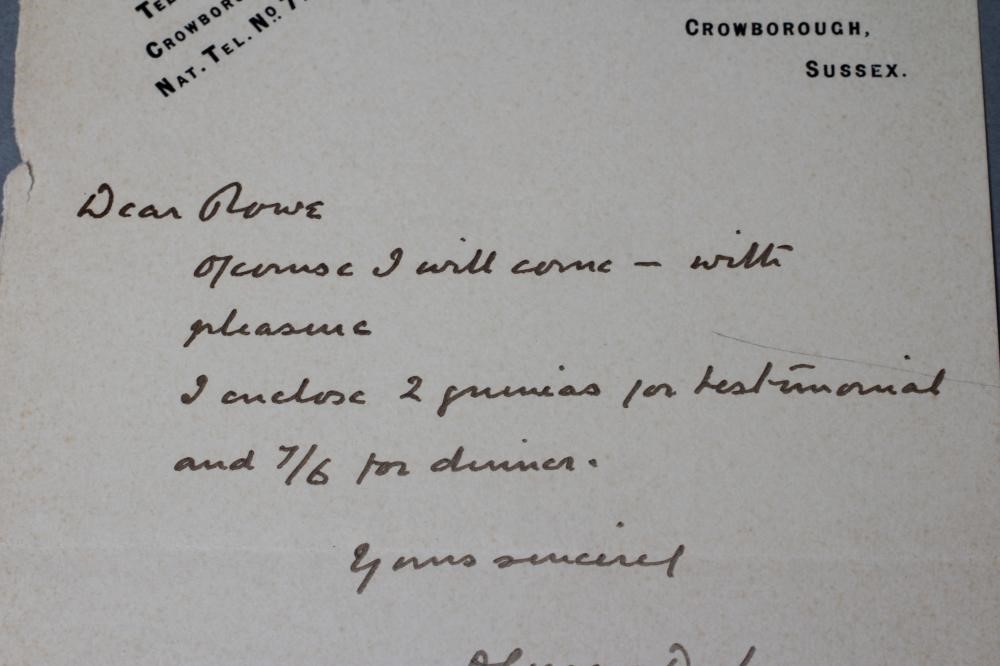 Crowborough,
Sussex.
Nat. Tel. No. 7
Dear Rowe
Of course I will come – with
pleasure
I enclose 2 guineas for testimonial
and 7/6 for dinner.
Yours sincerely